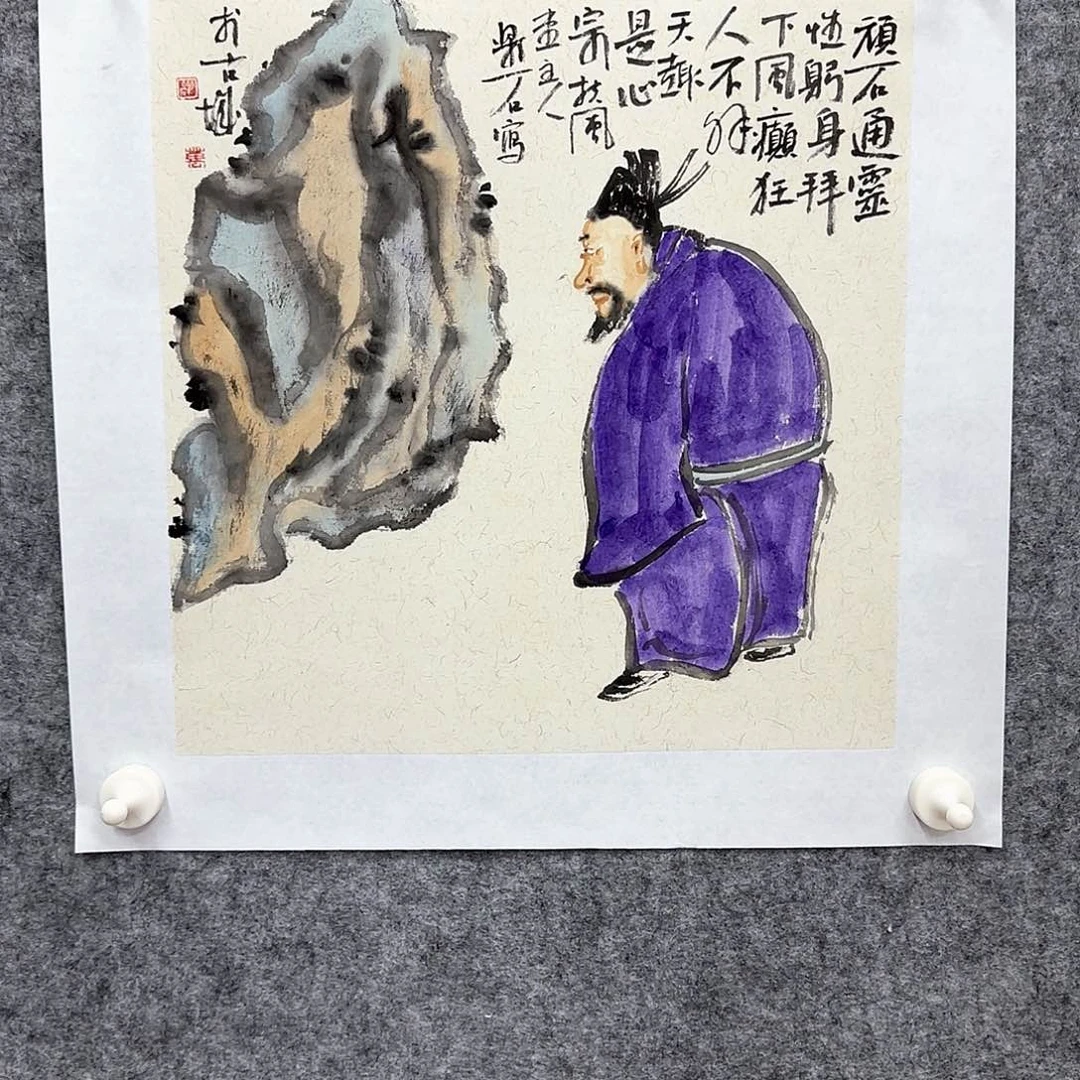 頑石通靈
性躬身拜
下風癲狂
人不解
天趣
是心
宗扶風
畫主人
鼎石寫
於古城